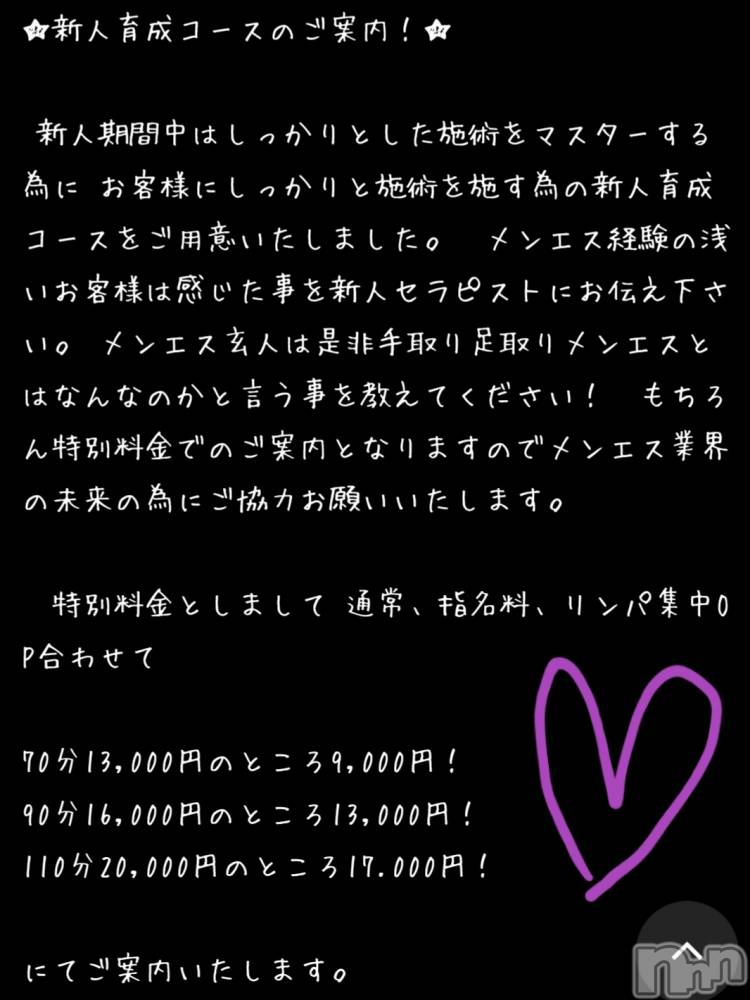 ★新人育成コースのご案内！★
新人期間中はしっかりとした施術をマスターする
為に お客様にしっかりと施術を施す為の新人育成
コースをご用意いたしました。 メンエス経験の浅
いお客様は感じた事を新人セラピストにお伝え下さ
い。 メンエス玄人は是非手取り足取りメンエスと
はなんなのかと言う事を教えてください！ もちろ
ん特別料金でのご案内となりますのでメンエス業界
の未来の為にご協力お願いいたします。
特別料金としまして 通常、指名料、リンパ集中O
P合わせて
70分13,000円のところ9,000円！
90分16,000円のところ13,000円！
110分20,000円のところ17.000円！
にてご案内いたします。
nwn